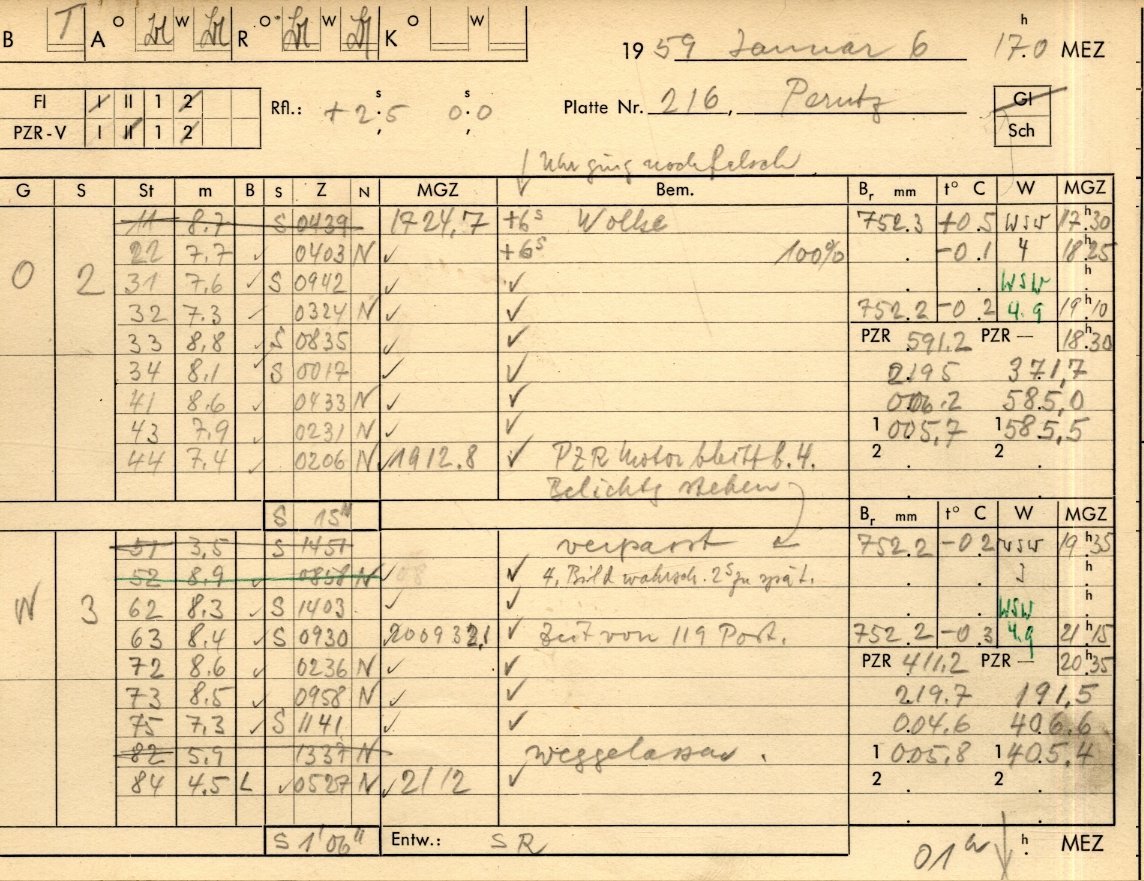 B T A O W R O W K O W
19 59 Januar 6 17.0 h MEZ
Fl I II 1 2
PZR-V I II 1 2
Rfl.: +2.5 s 0.0 s
Platte Nr. 216, Perutz
Gl
Sch
Uhr ging noch falsch
G S St m B S Z N MGZ Bem. Br mm t° C W MGZ
11 8.7 S 0439 1724,7 +6s Wolke 752.3 +0.5 WSW 17h30
22 7.7 ✓ 0403 N ✓ +6s 100% -0.1 4 18h25
O 2 31 7.6 ✓ S 0942 ✓ ✓ WSW h
32 7.3 ✓ 0324 N ✓ ✓ 752.2 -0.2 4.9 19h10
33 8,8 ✓ S 0835 ✓ ✓ PZR 591.2 PZR — 18h30
34 8,1 S 0017 ✓ ✓ 2195 371,7
41 8.6 ✓ 0433 N ✓ ✓ 006.2 585,0
43 7,9 ✓ 0231 N ✓ ✓ 1 005,7 1 585,5
44 7.4 ✓ 0206 N ✓ 1912.8 ✓ PZR Motor bleibt b. 4. 2 2
Belichtg stehen
S 15" Br mm t° C W MGZ
51 3,5 S 1451 verpasst 752.2 -0.2 WSW 19h35
52 8.9 ✓ 0858 N ✓ 4. Bild wahrsch. 2s zu spät. 3 h
W 3 62 8.3 ✓ S 1403 ✓ ✓ WSW h
63 8.4 ✓ S 0930 ✓ Zeit von 119 Post. 752.2 -0.3 4.9 21h15
72 8.6 ✓ 0236 N ✓ ✓ PZR 411.2 PZR — 20h35
73 8.5 ✓ 0958 N ✓ ✓ 219.7 191,5
75 7.3 ✓ S 1141 ✓ ✓ 004.6 406.6
82 5,9 1337 N weggelassen. 1 005,8 1 405,4
84 4,5 L ✓ 0527 N ✓ 2112 ✓ 2 2
S 1'06" Entw.: SR 01h h MEZ